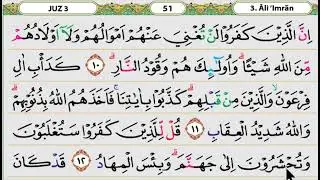 JUZ 3 51 3. Âli 'Imrân
اِنَّ الَّذِيْنَ كَفَرُوْا لَنْ تُغْنِيَ عَنْهُمْ اَمْوَالُهُمْ وَلَآ اَوْلَادُهُمْ
مِّنَ اللّٰهِ شَيْـًٔا ۗوَاُولٰۤىِٕكَ هُمْ وَقُوْدُ النَّارِۙ ١٠ كَدَأْبِ اٰلِ
فِرْعَوْنَۙ وَالَّذِيْنَ مِنْ قَبْلِهِمْ ۗكَذَّبُوْا بِاٰيٰتِنَاۚ فَاَخَذَهُمُ اللّٰهُ بِذُنُوْبِهِمْ ۗ
وَاللّٰهُ شَدِيْدُ الْعِقَابِ ١١ قُلْ لِّلَّذِيْنَ كَفَرُوْا سَتُغْلَبُوْنَ
وَتُحْشَرُوْنَ اِلٰى جَهَنَّمَ ۗوَبِئْسَ الْمِهَادُ ١٢ قَدْ كَانَ